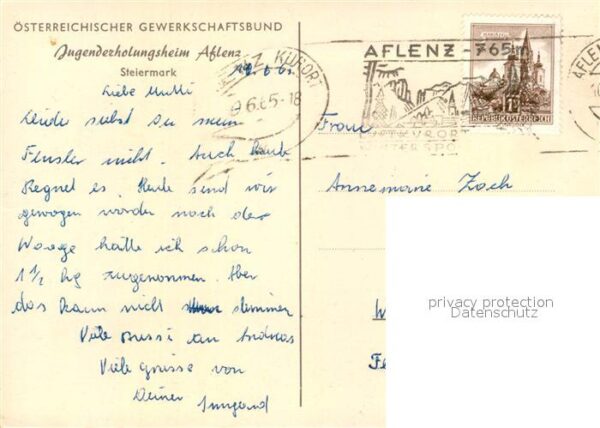 ÖSTERREICHISCHER GEWERKSCHAFTSBUND
Jugenderholungsheim Aflenz
Steiermark
KURORT
9.6.65-18
AFLENZ - 765m
LUFTKURORT
WINTERSPORT
REPUBLIK ÖSTERREICH
AFLENZ
Liebe Mutti
Leider siehst Du mein
Fenster nicht. Auch heute
Regnet es. Heute send wir
gewogen worden nach der
Waage hätte ich schon
1 1/2 kg zugenommen. Aber
das kann nicht stimmen
Viele Bussi an Andreas
Viele grüsse von
Deiner Irmgard
Frau
Annemarie Zach
W
Fe
privacy protection
Datenschutz